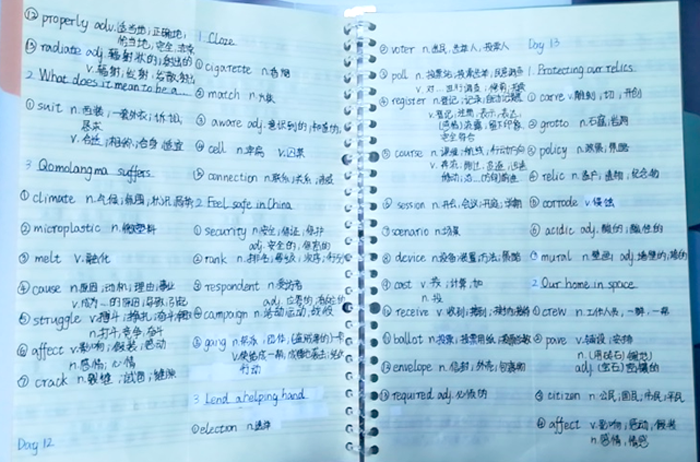 ⑫ properly adv. 适当地;正确地;
⑬ radiate adj. 辐射状的;射出的
v. 辐射;
2. What does it mean to be a...
① suit n. 西装;一套衣衣;诉讼;
v. 合适;相称;
3 Qomolangma suffers
① climate n. 气候;氛围;
② microplastic n. 微塑料
③ melt v. 融化
④ cause n. 原因;动机;理由;事业
v. 成为…的原因;导致;引起
⑤ struggle v. 搏斗;挣扎;奋斗
n. 打斗;竞争;奋斗
⑥ affect v. 影响;假装;感动
n. 感情;心情
⑦ crack n. 裂缝;
Day 12
1 Cloze
① cigarette n. 香烟
② match n. 火柴
③ aware adj. 意识到的;
④ cell n. 牢房 v.
⑤ connection n. 联系;关系;连接
2 Feel safe in China
① security n. 安全;保证;保护
adj. 安全的;保密的
② rank n. 排名;等级;次序;
③ respondent n.
adj.
④ campaign n. 活动;运动;战役
⑤ gang n. 一帮;团伙;
行动
3 Lend a helping hand
① election n. 选举
② voter n. 选民;选举人;投票人
③ poll n. 投票站;投票选举;民意调查
v. 对…进行调查;
④ register n. 登记;记录;
v. 登记;注册;表示;表达;
⑤ course n. 课程;航线;
⑥ session n. 开会;会议;开庭;学期
⑦ scenario n. 场景
⑧ device n. 设备;装置;方法;策略
⑨ cast v. 投;计算;加
n. 投
⑩ receive v. 收到;接到;
⑪ ballot n. 投票;投票用纸;
⑫ envelope n. 信封;外壳;包裹物
⑬ required adj. 必须的
Day 13
1. Protecting our relics
① carve v. 雕刻;切;开创
② grotto n. 石窟;岩洞
③ policy n. 政策;策略
④ relic n. 遗产;遗物;纪念物
⑤ corrode v. 侵蚀
⑥ acidic adj. 酸的;酸性的
⑦ mural n. 壁画 adj. 墙壁的;墙的
2 Our home in space
① crew n. 工作人员;一群;一帮
② pave v. 铺设;安排
n.
adj.
③ citizen n. 公民;国民;市民;平民
④ affect v. 影响;感动;假装
n. 感情;情感